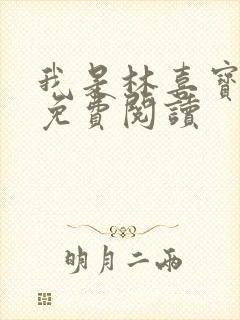 我是林喜寶
免費閱讀
明月二兩